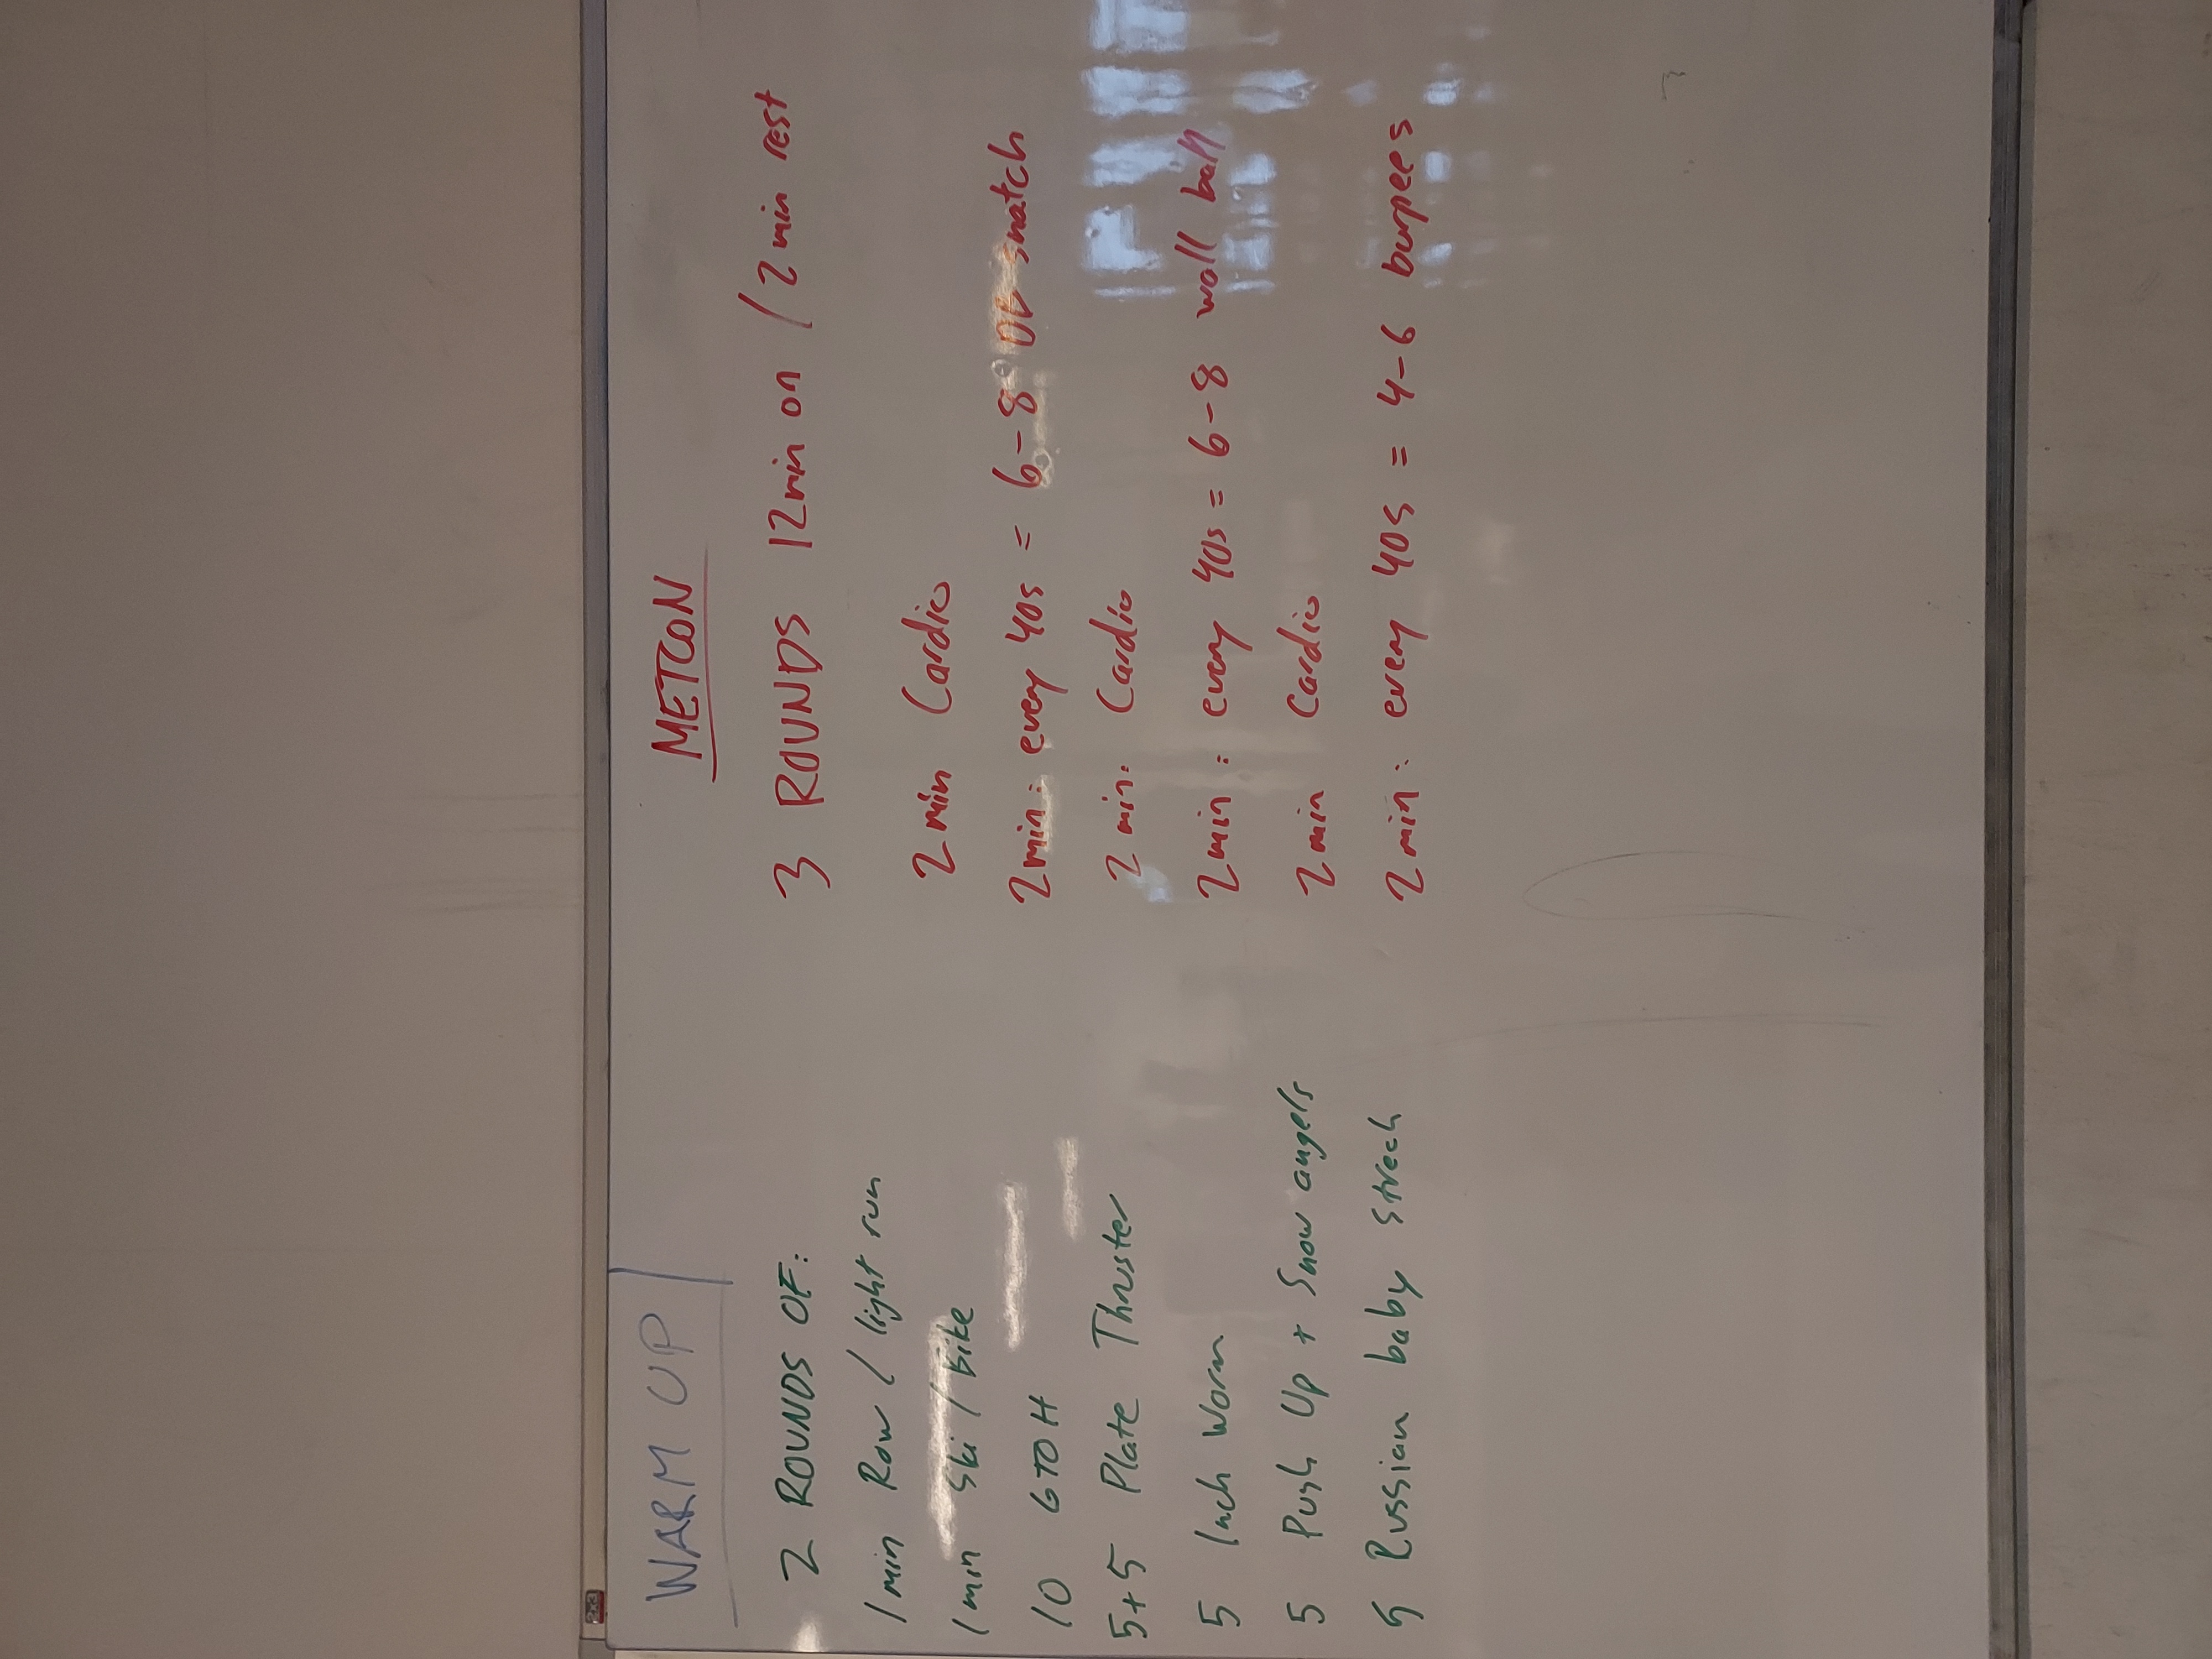 WARM UP
2 ROUNDS OF:
1 min Row / light run
1 min Ski / bike
10 GTOH
5+5 Plate Thruster
5 Inch Worm
5 Push Up + Snow angels
5 Russian baby strech
METCON
3 ROUNDS 12min on / 2 min rest
2 min Cardio
2min: every 40s = 6-8 snatch
2 min. Cardio
2min: every 40s = 6-8 wall ball
2 min Cardio
2 min: every 40s = 4-6 burpees